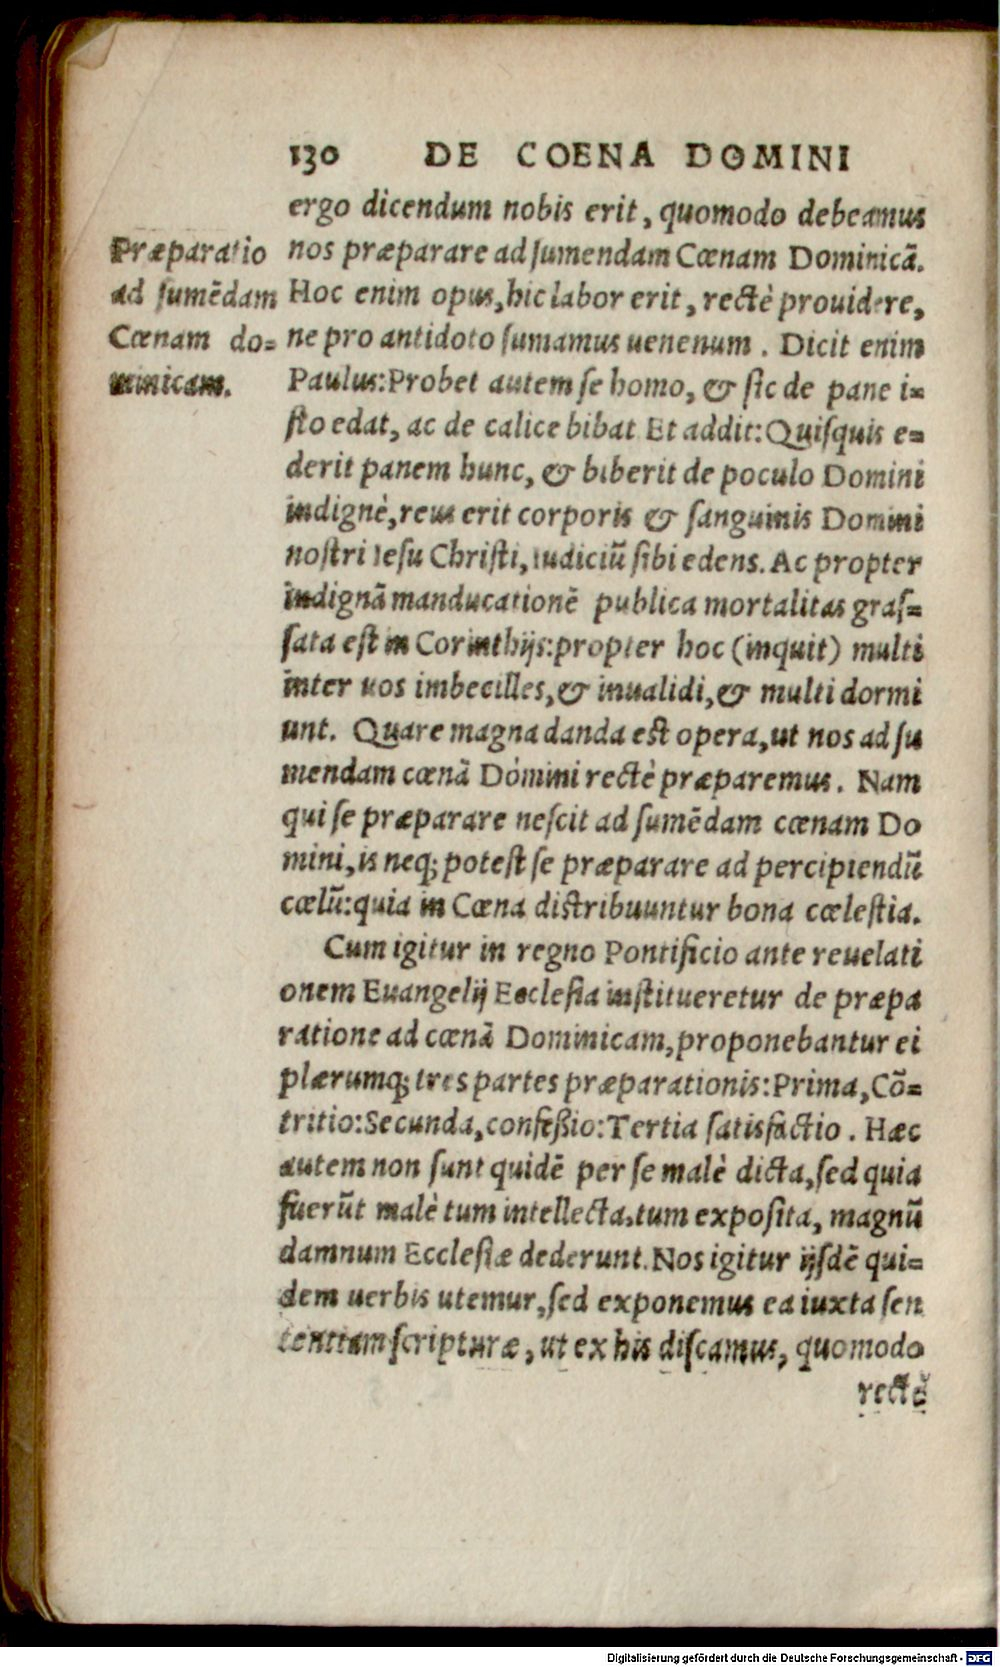 130 DE COENA DOMINI
ergo dicendum nobis erit, quomodo debeamus
Præparatio
ad sumẽdam
Cœnam do=
minicam.
nos præparare ad sumendam Cœnam Dominicã.
Hoc enim opus, hic labor erit, rectè prouidere,
ne pro antidoto sumamus uenenum. Dicit enim
Paulus: Probet autem se homo, & sic de pane i=
sto edat, ac de calice bibat Et addit: Quisquis e=
derit panem hunc, & biberit de poculo Domini
indignè, reus erit corporis & sanguinis Domini
nostri Iesu Christi, iudiciũ sibi edens. Ac propter
indignã manducationẽ publica mortalitas gras=
sata est in Corinthijs: propter hoc (inquit) multi
inter uos imbecilles, & inualidi, & multi dormi
unt. Quare magna danda est opera, ut nos ad su
mendam cœnã Domini rectè præparemus. Nam
qui se præparare nescit ad sumẽdam cœnam Do
mini, is neq; potest se præparare ad percipiendũ
cœlũ: quia in Cœna distribuuntur bona cœlestia.
Cum igitur in regno Pontificio ante reuelati
onem Euangelij Ecclesia institueretur de præpa
ratione ad cœnã Dominicam, proponebantur ei
plærumq; tres partes præparationis: Prima, Cõ=
tritio: Secunda, confeßio: Tertia satisfactio. Hæc
autem non sunt quidẽ per se malè dicta, sed quia
fuerũt malè tum intellecta, tum exposita, magnũ
damnum Ecclesiæ dederunt. Nos igitur ijsdẽ qui=
dem uerbis utemur, sed exponemus ea iuxta sen
tentiam scripturæ, ut ex his discamus, quomodo
rectè
Digitalisierung gefördert durch die Deutsche Forschungsgemeinschaft - DFG